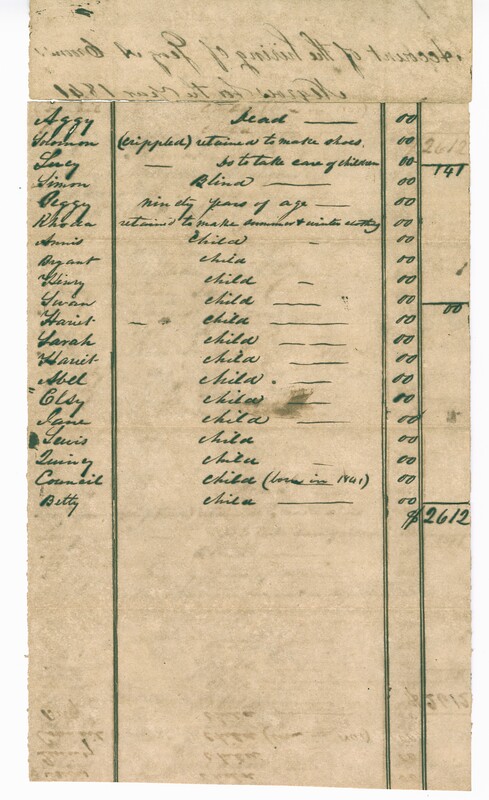 Account of the hiring of
Negroes for the Year 1841
Aggy Dead 00
Solomon (crippled) retained to make shoes. 00 2612
Lucy Do to take care of children 00 141
Simon Blind 00
Peggy ninety years of age 00
Rhoda retained to make summer & winter clothing 00
Annis Child 00
Bryant child 00
Henry child 00
Swan child 00 00
Hariet child 00
Sarah child 00
Hariet child 00
Abel child 00
Elsy child 00
Jane child 00
Lewis child 00
Quincy child 00
Council child (born in 1841) 00
Betty child 00
$2612